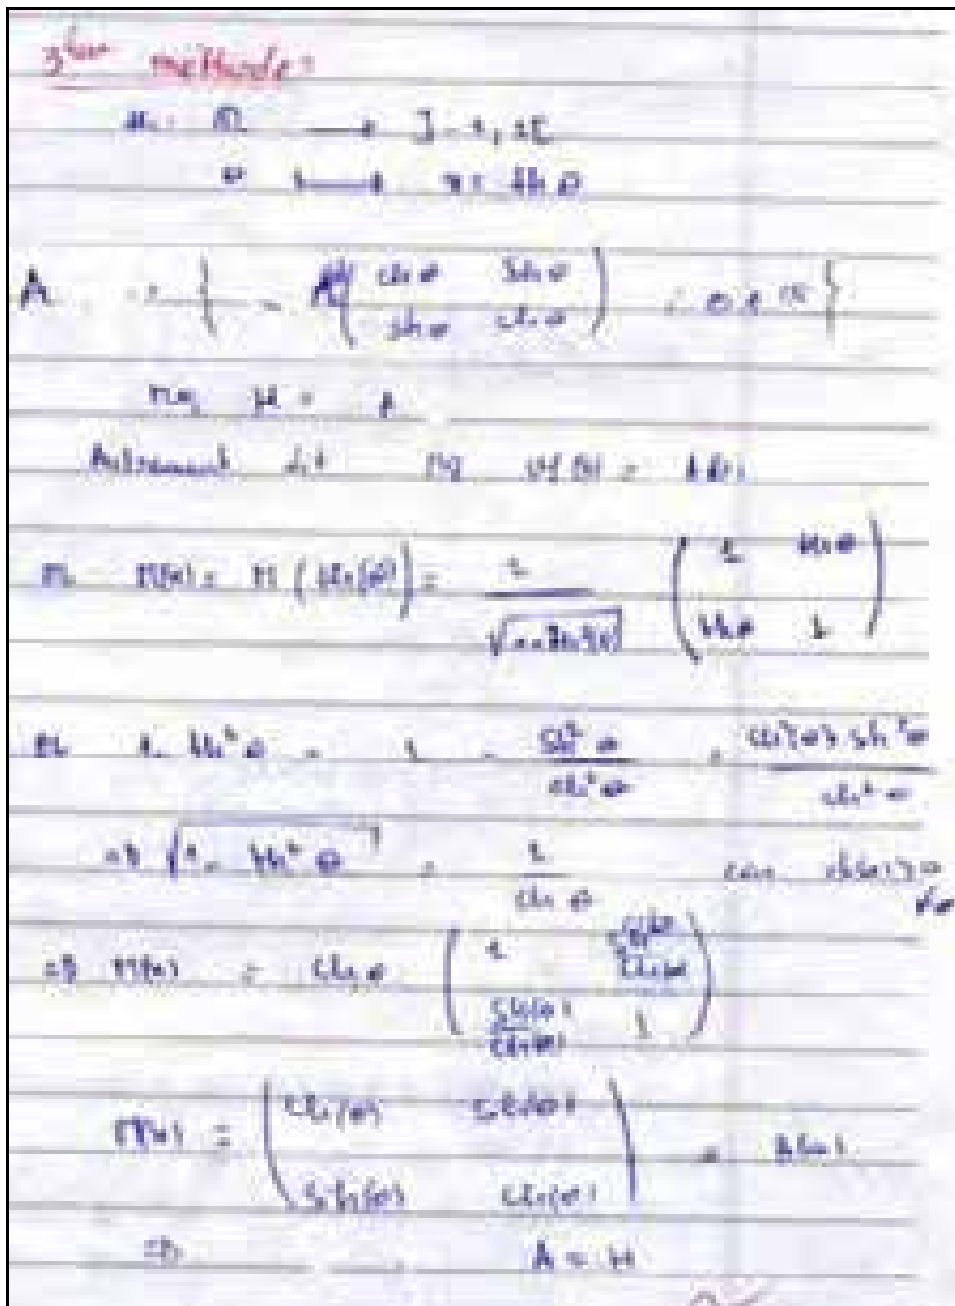 3ème méthode:
ℝ → ]-1, 1[
θ ↦ x = th θ
A = { A = ( ch θ sh θ ; sh θ ch θ ) ; θ ∈ ℝ }
Mq H = A
Autrement dit Mq
M(x) = M(th(θ)) = 1/√(1-th²(θ)) ( 1 th θ ; th θ 1 )
1 - th² θ = 1 - sh² θ / ch² θ = (ch²(θ) - sh² θ) / ch² θ
⇒ √(1 - th² θ) = 1 / ch θ car ch(θ) > 0 ∀θ
⇒ M(x) = ch θ ( 1 sh(θ)/ch(θ) ; sh(θ)/ch(θ) 1 )
M(x) = ( ch(θ) sh(θ) ; sh(θ) ch(θ) ) = A(θ)
⇒ A = H